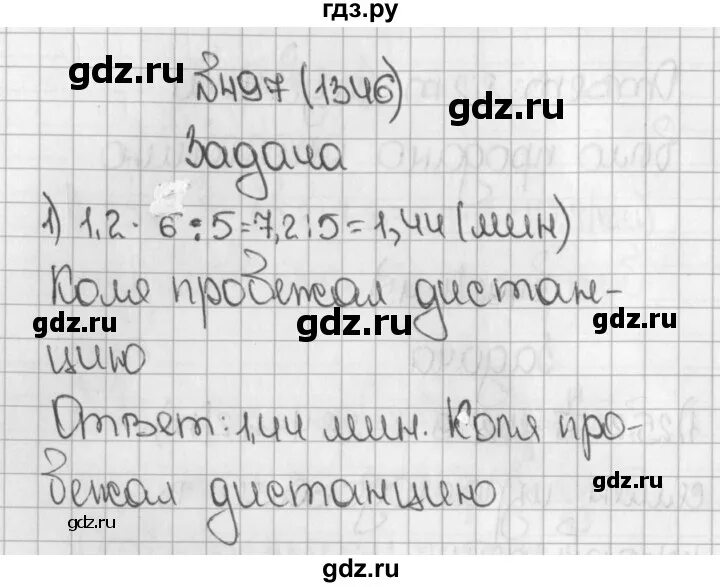 гдз.ру
gdz.ru gdz.ru
№497 (1346)
Задача
1) 1,2 · 6 : 5 = 7,2 : 5 = 1,44 (мин)
Коля пробежал дистан-
gdz.ru gdz.ru gdz.ru
цию
Ответ: 1,44 мин. Коля про-
gdz.ru
бежал дистанцию
gdz.ru